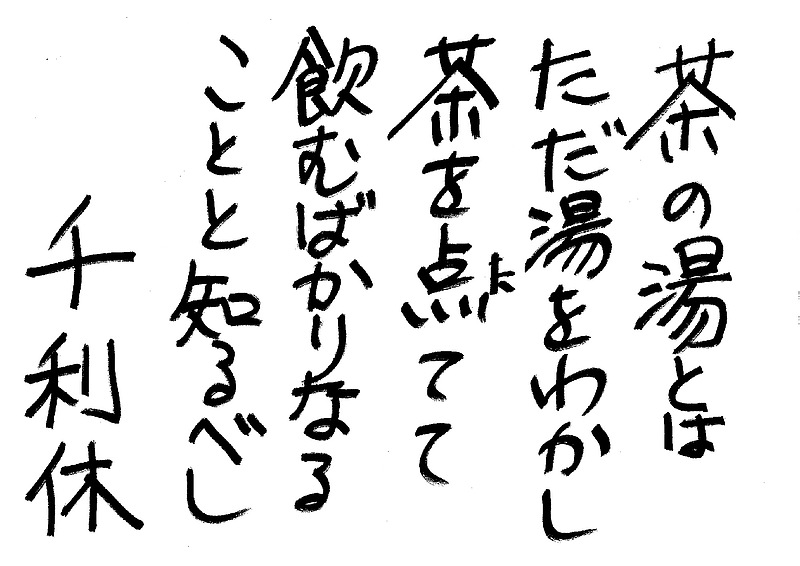 茶の湯とは
ただ湯をわかし
茶を点てて
た
飲むばかりなる
ことと知るべし
千利休